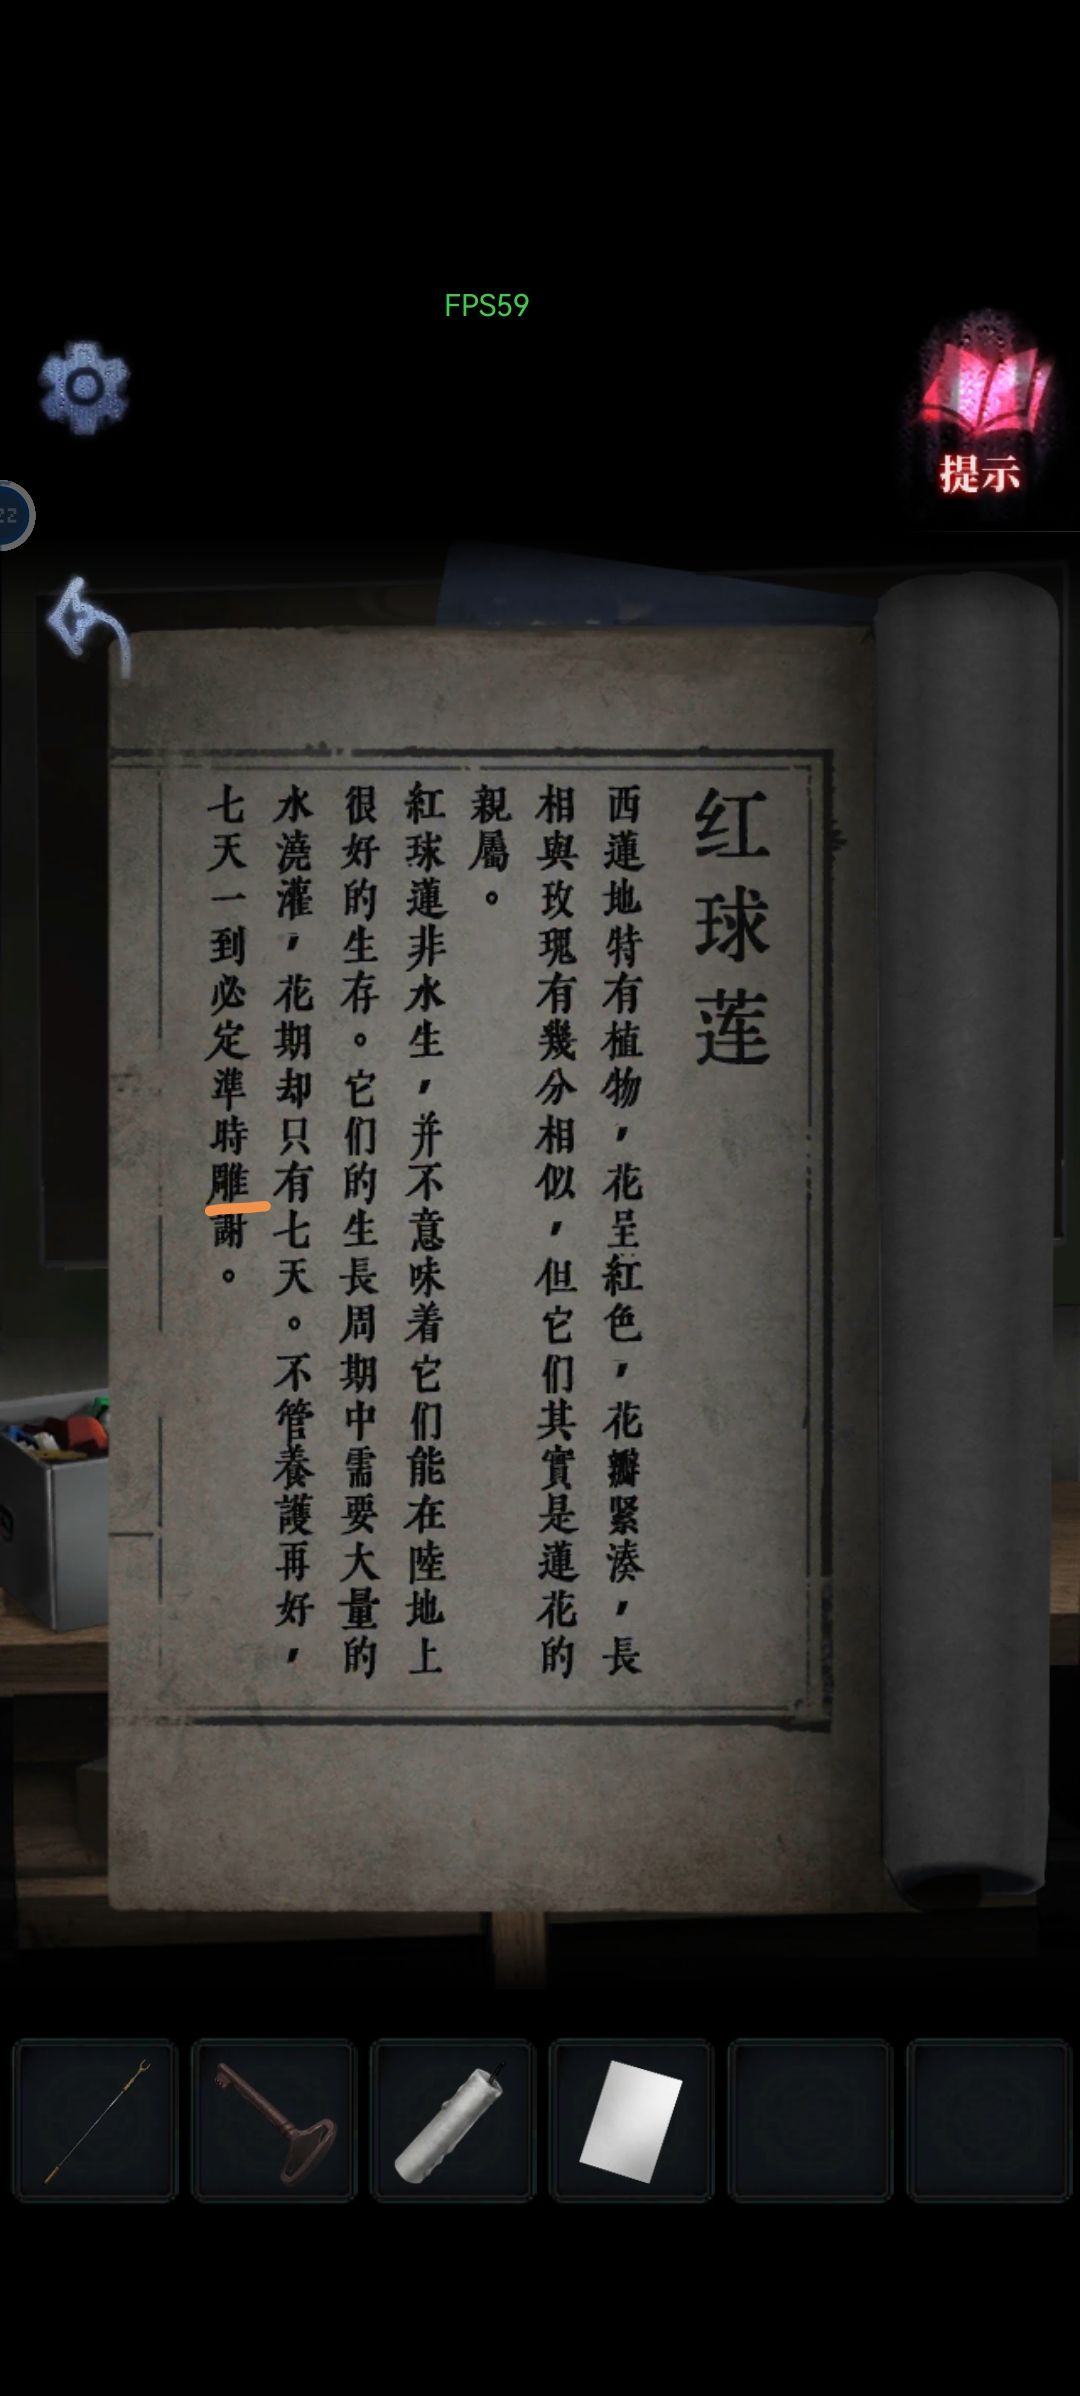 FPS59
提示
22
红球莲
西蓮地特有植物，花呈紅色，花瓣紧湊，長
相與玫瑰有幾分相似，但它们其實是蓮花的
親屬。
紅球蓮非水生，并不意味着它们能在陸地上
很好的生存。它们的生長周期中需要大量的
水澆灌，花期却只有七天。不管養護再好，
七天一到必定準時雕謝。